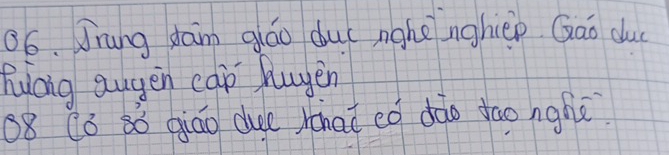 06. Trung tâm giáo dục nghề nghiệp. Giáo dục
thường xuyên cấp huyện
08 Có sở giáo dục khác có đào tạo nghề.